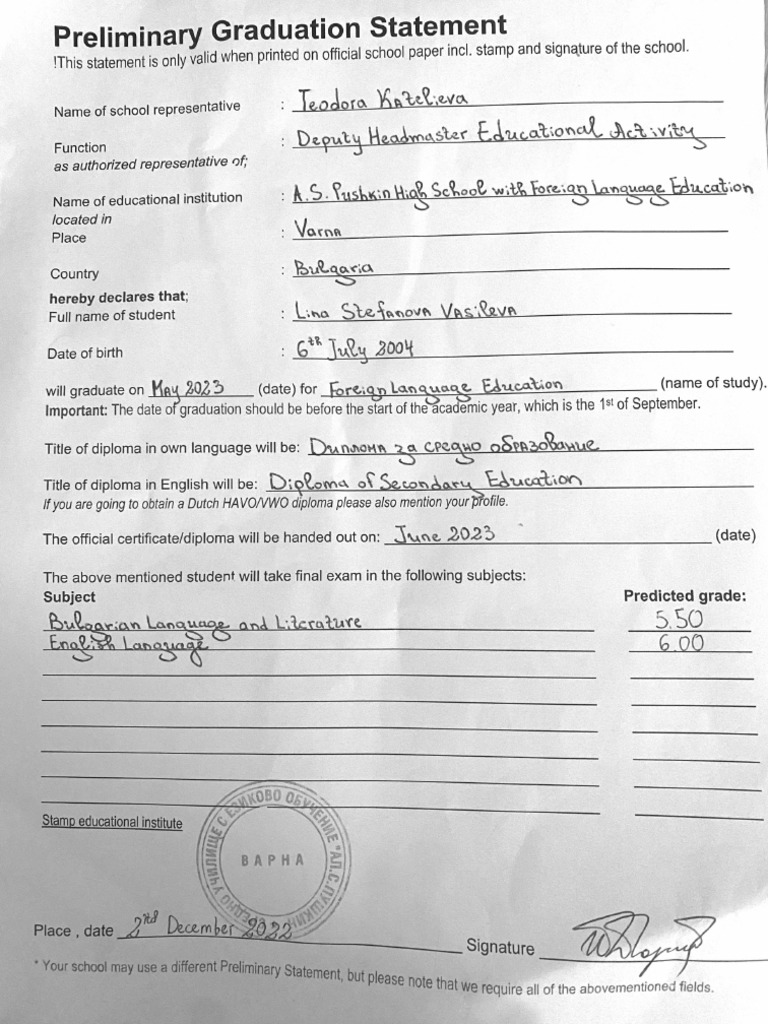 Preliminary Graduation Statement
!This statement is only valid when printed on official school paper incl. stamp and signature of the school.
Name of school representative : Teodora Kazelieva
Function : Deputy Headmaster Educational Activity
as authorized representative of;
Name of educational institution : A.S. Pushkin High School with Foreign Language Education
located in
Place : Varna
Country : Bulgaria
hereby declares that;
Full name of student : Lina Stefanova Vasileva
Date of birth : 6th July 2004
will graduate on May 2023 (date) for Foreign Language Education (name of study).
Important: The date of graduation should be before the start of the academic year, which is the 1st of September.
Title of diploma in own language will be: Диплома за средно образование
Title of diploma in English will be: Diploma of Secondary Education
If you are going to obtain a Dutch HAVO/VWO diploma please also mention your profile.
The official certificate/diploma will be handed out on: June 2023 (date)
The above mentioned student will take final exam in the following subjects:
Subject Predicted grade:
Bulgarian Language and Literature 5.50
English Language 6.00
Stamp educational institute
СРЕДНО УЧИЛИЩЕ С ЕЗИКОВО ОБУЧЕНИЕ "АЛ.С.ПУШКИН"
ВАРНА
Place , date 2nd December 2022 Signature
* Your school may use a different Preliminary Statement, but please note that we require all of the abovementioned fields.